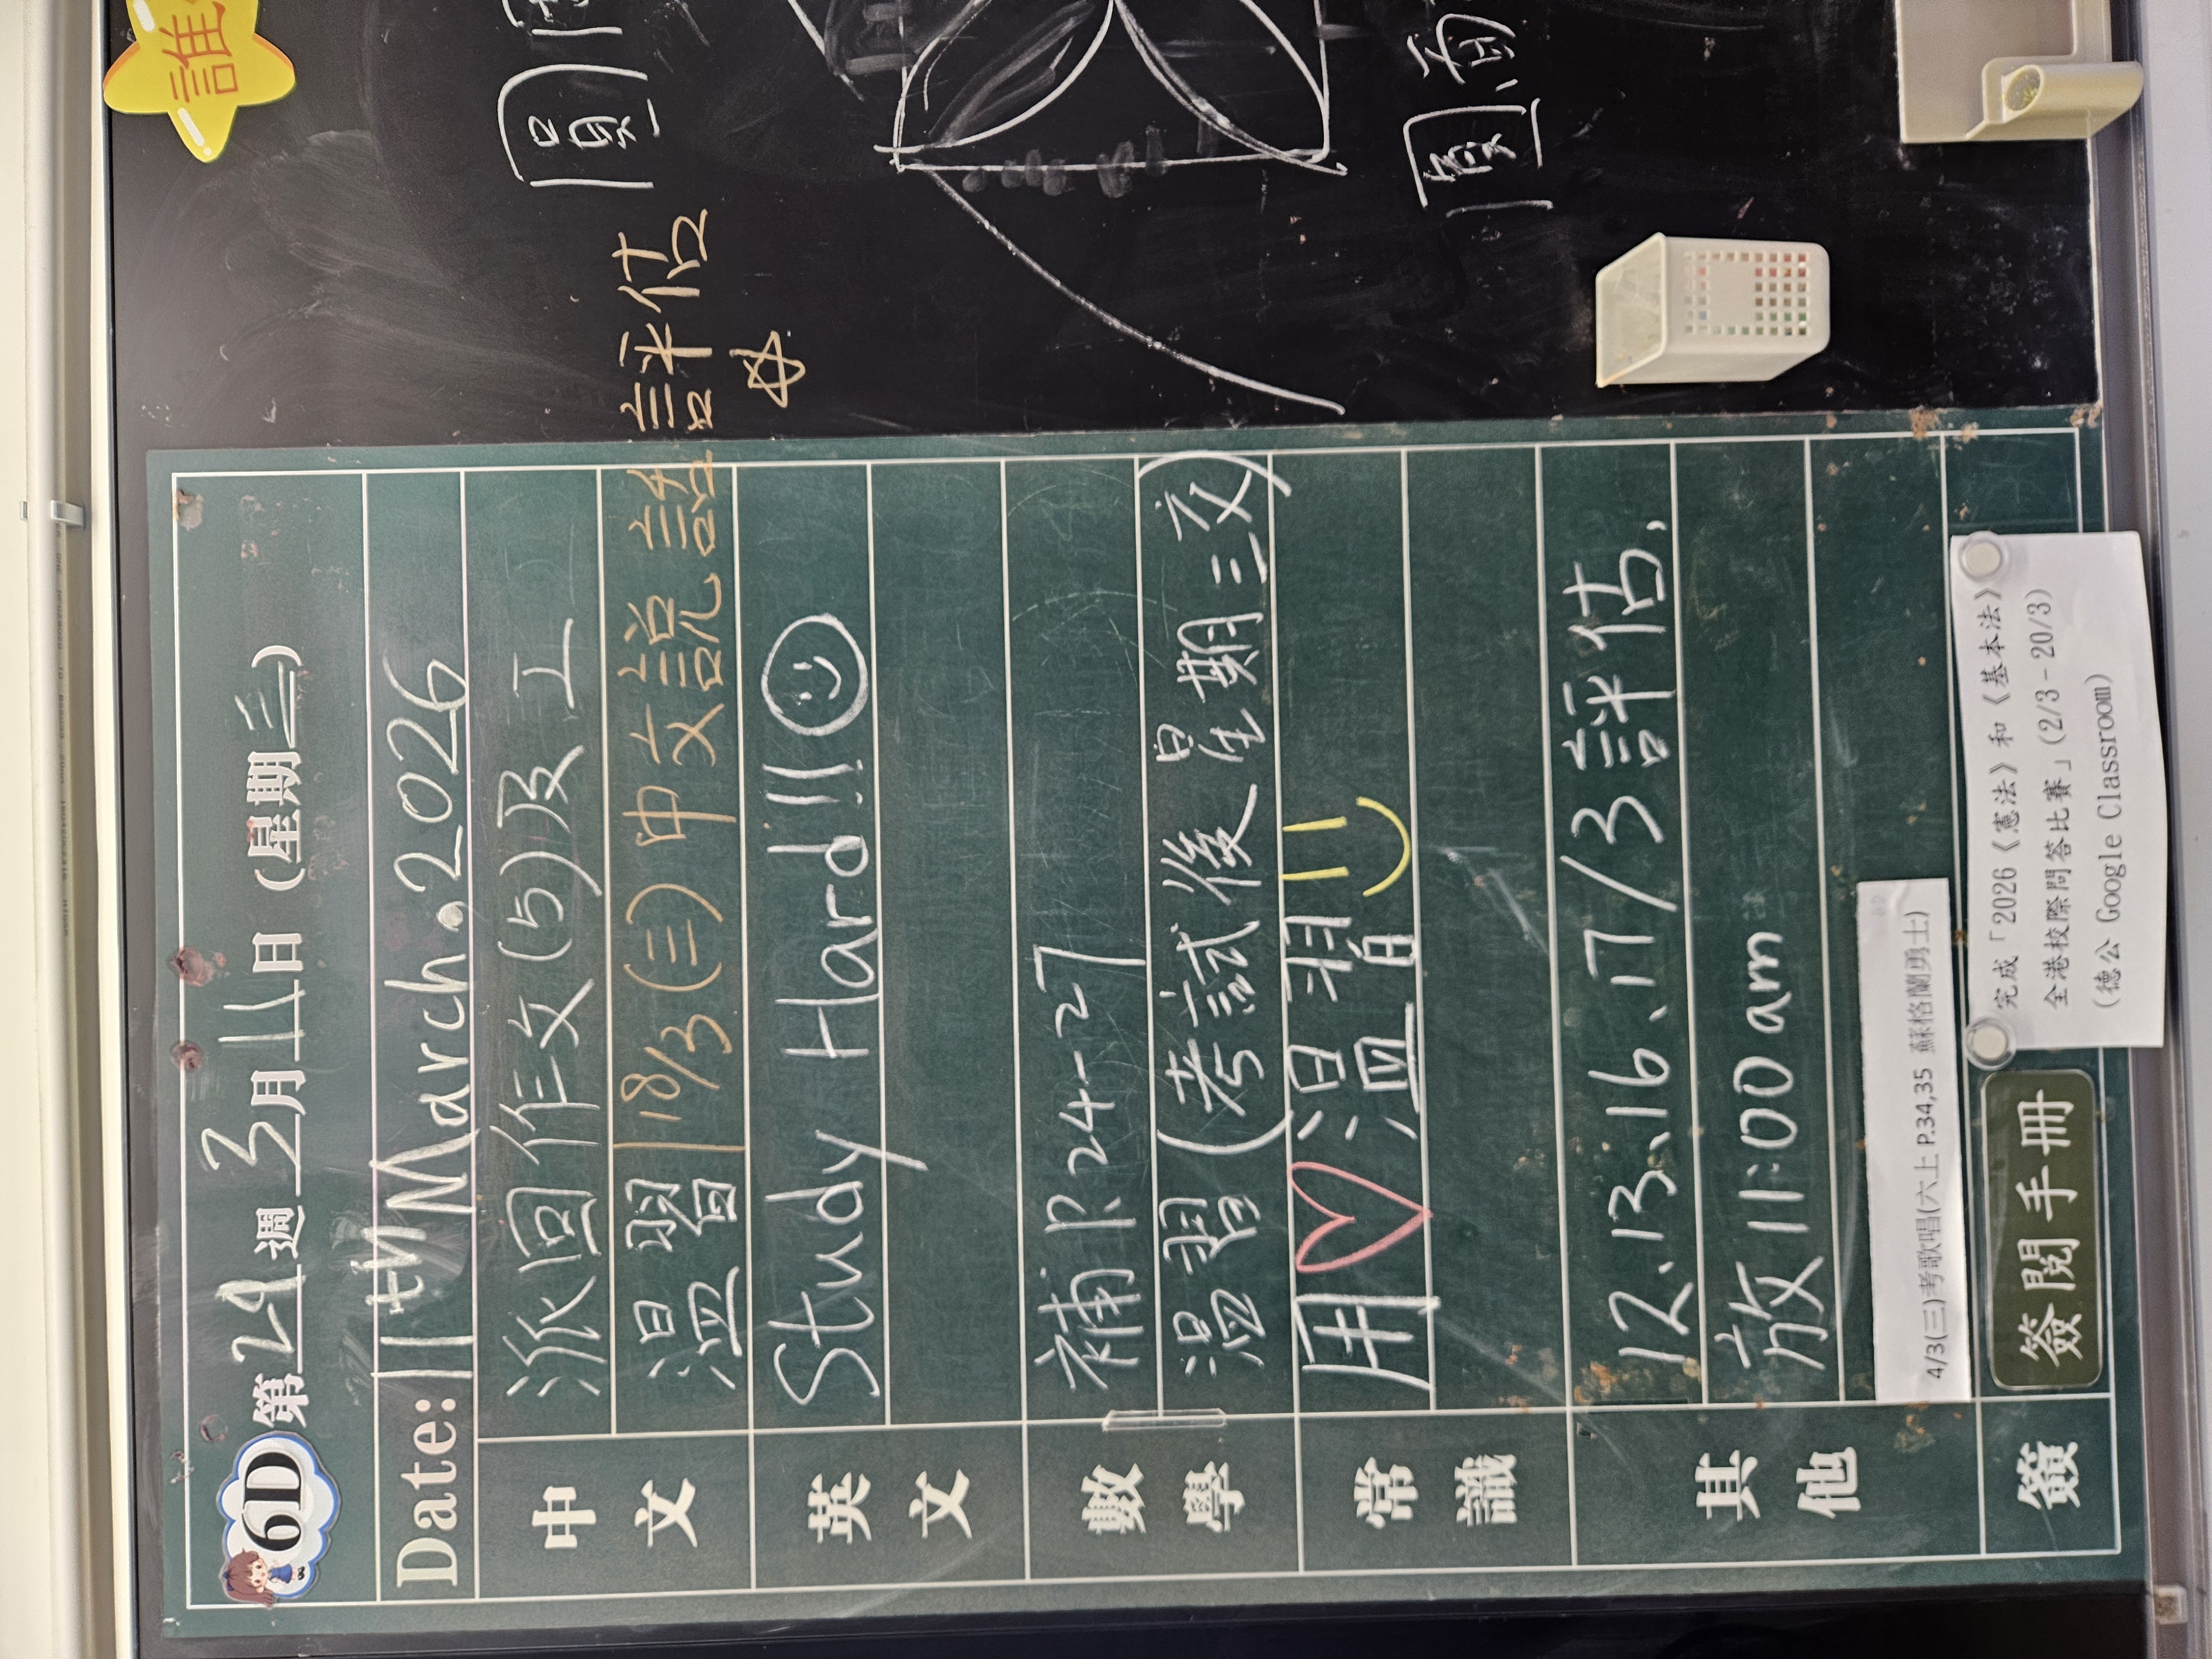 6D 第29週 3月11日 (星期三)
Date: 11th March. 2026
中文
派回作文(5)及工
溫習 18/3(三)中文說話評估
英文
Study Hard!!!
數學
補 P.24-27
溫習 (考試後星期三交)
常識
用 溫習
其他
12、13、16、17/3評估、
放 11:00 am
4/3(三)考歌唱(六上 P.34,35 蘇格蘭勇士)
完成「2026《憲法》和《基本法》
全港校際問答比賽」(2/3-20/3)
(德公 Google Classroom)
簽
簽閱手冊
誰
圓
圓